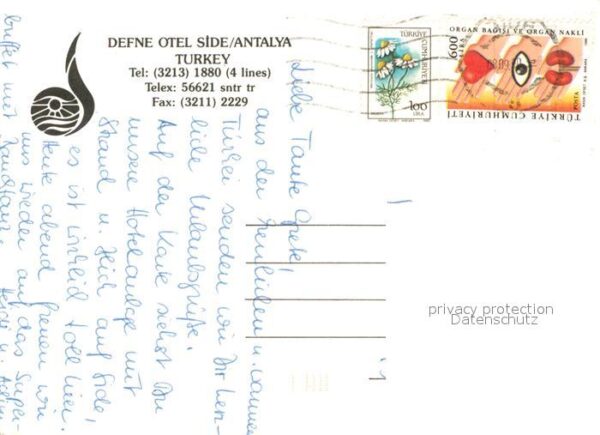 DEFNE OTEL SİDE/ANTALYA
TURKEY
Tel: (3213) 1880 (4 lines)
Telex: 56621 sntr tr
Fax: (3211) 2229
TÜRKİYE CUMHURİYETİ
100
LİRA
ORGAN BAĞIŞI VE ORGAN NAKLİ
600
POSTA
TÜRKİYE CUMHURİYETİ
Liebe Tante Grete!
aus der herrlichen u. warmen
Türkei senden wir Dir herz-
liche Urlaubsgrüße.
Auf der Karte siehst Du
unsere Hotelanlage mit
Strand u. Blick auf Side,
es ist wirklich toll hier.
Heute abend freuen wir
uns wieder auf das Super-
buffet mit
privacy protection
Datenschutz